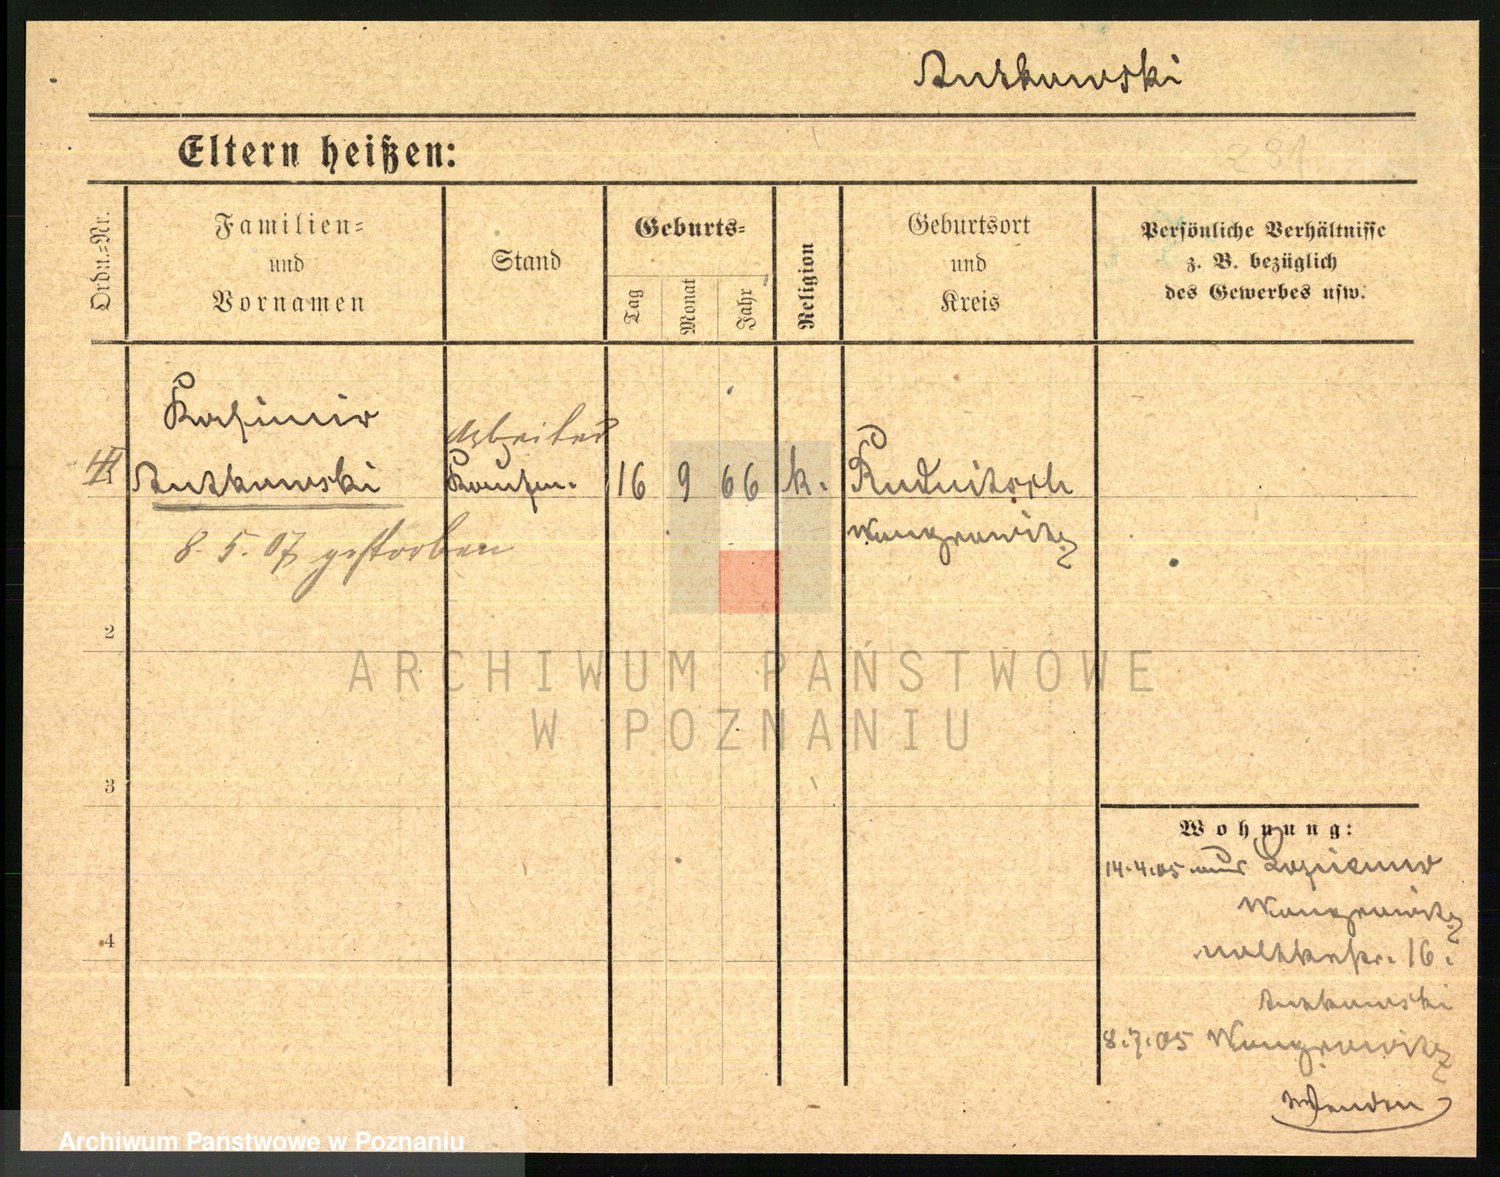 Autkowski
Eltern heißen:
281
Ordn.-Nr.
Familien-
und
Vornamen
Stand
Geburts-
Tag
Monat
Jahr
Religion
Geburtsort
und
Kreis
Persönliche Verhältnisse
z. B. bezüglich
des Gewerbes usw.
Kasimir
Arbeiter
Autkowski
16
9
66
k.
Wongrowitz
8. 5. 07 gestorben
2
3
4
ARCHIWUM PAŃSTWOWE
W POZNANIU
Wohnung:
14.4.05
Wongrowitz
16.
Autkowski
8.7.05 Wongrowitz
Archiwum Państwowe w Poznaniu